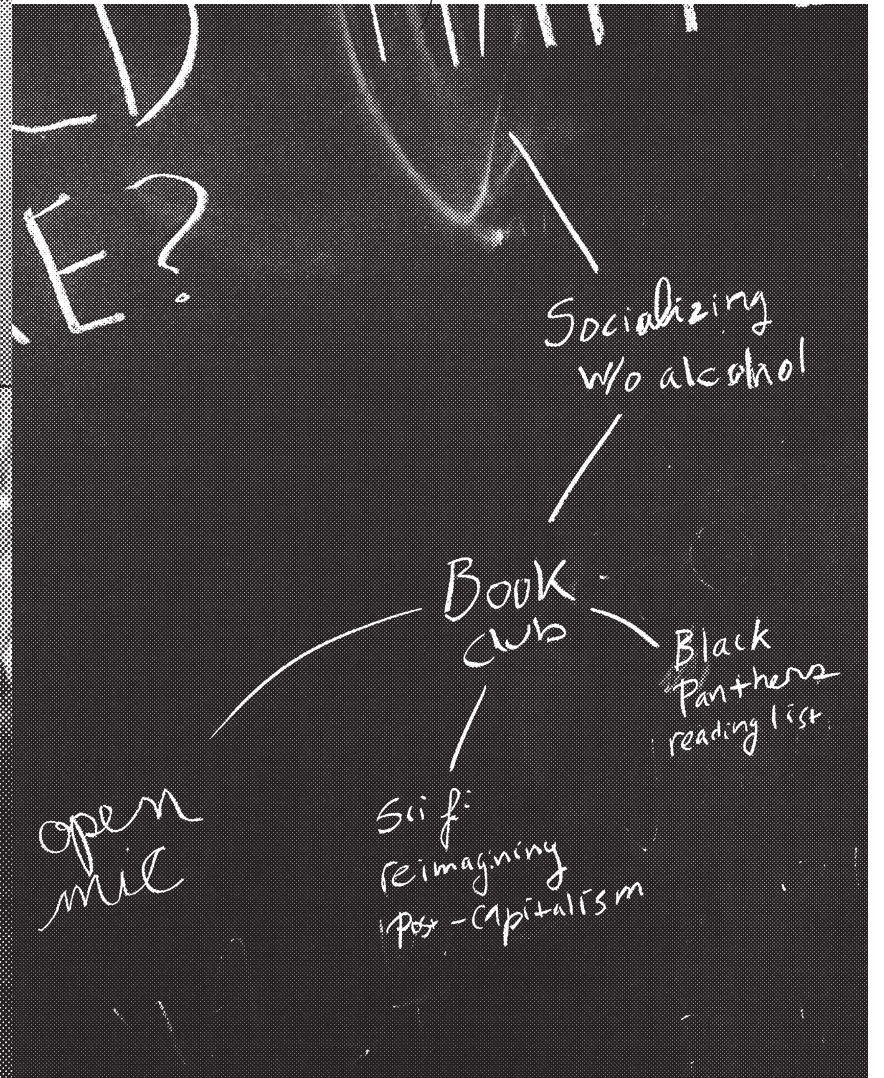 LD
E?
Socializing
w/o alcohol
Book
Club
Black
Panthers
reading list
open
mic
Sci fi
reimagining
post-capitalism